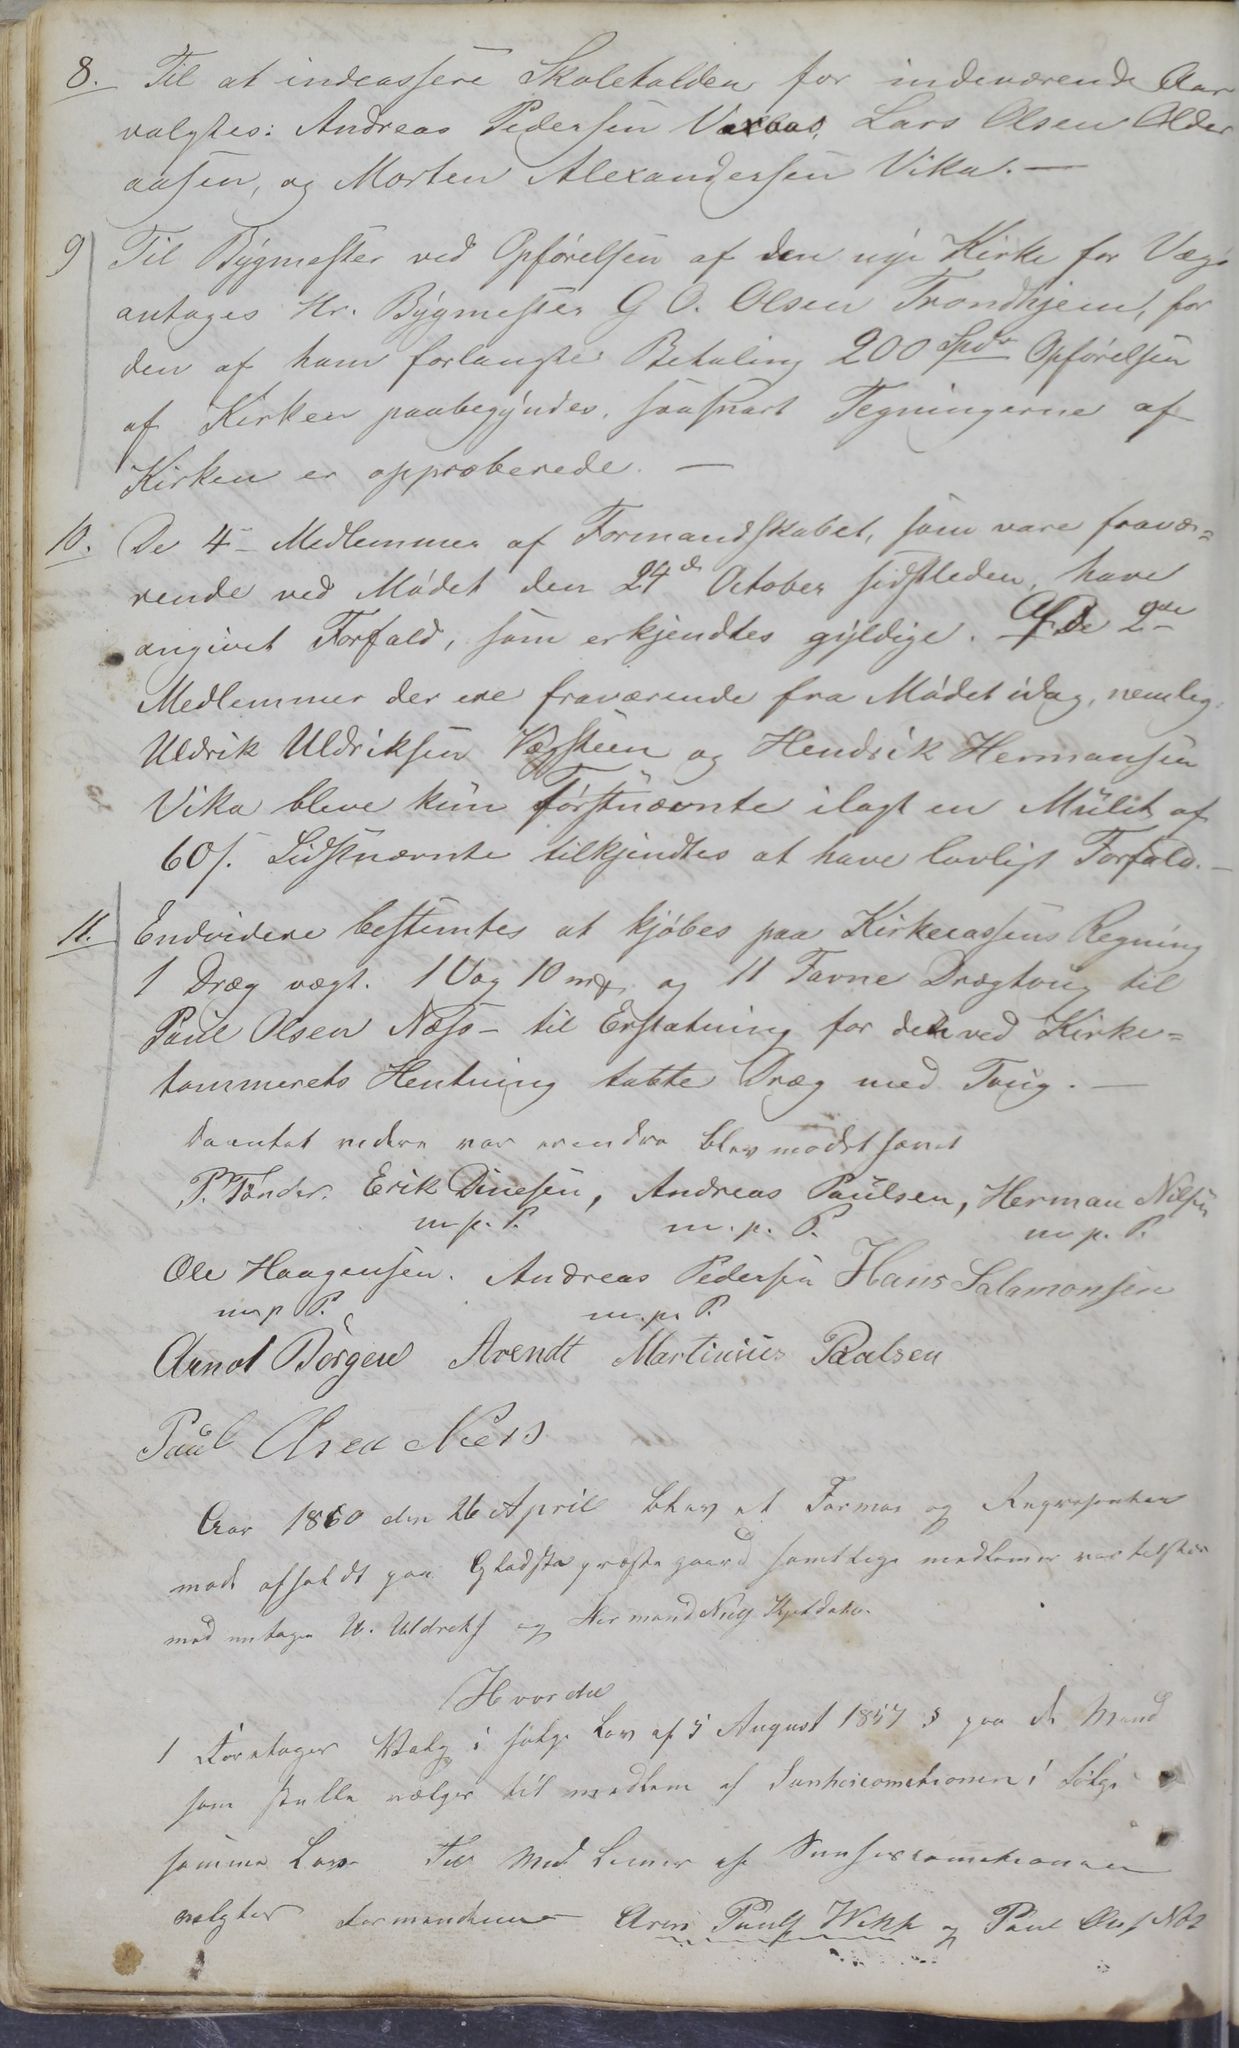 8. Til at indcassere Skoletolden for indeværende Aar
valgtes: Andreas Pedersen Lars Olsen Older
aasen, og Morten Alexandersen Vika. —
9 Til Bÿgmester ved Opförelsen af den nÿe Kirke for Vægø
antages Hr. Bÿgmester G O. Olsen Trondhjem, for
den af ham forlangte Betaling 200 Spdr Opförelsen
af Kirken paabegÿndes, saasnart Tegningerne af
Kirken er approberede. —
10. De 4 – Medlemmer af Formandskabet, som vare fravæ=
rende ved Mödet den 24de October sidstleden, have
angivet Forfald, som erkjendtes gÿldige. Af De 2de
Medlemmer der ere fraværende fra Mödet idag, nemlig:
Uldrik Uldriksen Vægsteen og Hendrik Hermansen
Vika bleve kun förstnævnte ilagt en Mulct af
60 s. Sidstnævnte tilkjendtes at have lovligt Forfald. –
11. Endvidere bestemtes at kjöbes paa Kirkecassens Regning
1 Dræg vægt. 1 Vog 10 og 11 Favne Drægtoug til
Paul Olsen Næss – til Erstatning for det ved Kirke=
tommerets Hentning tabte Dræg med Toug. —
Da entet videre var blev mödet hævet
P. Tönder. Erik Dinesen, Andreas Paulsen, Herman Nilsen
m. p. P. m. p. P. m. p. P.
Ole Haagensen. Andreas Pedersen Hans Salamonsen
m p P. m. p. P.
Arnot Börgen Arendt Martinius Paalsen
Paul Olsen Næss
Aar 1860 den 26 April blev et Formas og Repræsenten
möde afholdt paa Gladsta præste gaard samtlige medlemer var
med entage U. Uldreks og
Hvor da
1 Foretages Valg i fölge Lov af 5 August 1857 § paa de Mænd
som skulle vælges til medlem af i fölge
samme Lov. Til Med Lemer af
valgtes Formandene Aren Pauls og Paul Ols. Næs